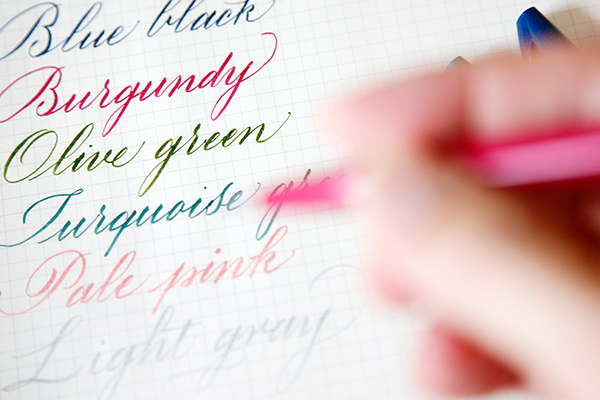 Blue black
Burgundy
Olive green
Turquoise
Pale pink
Light gray